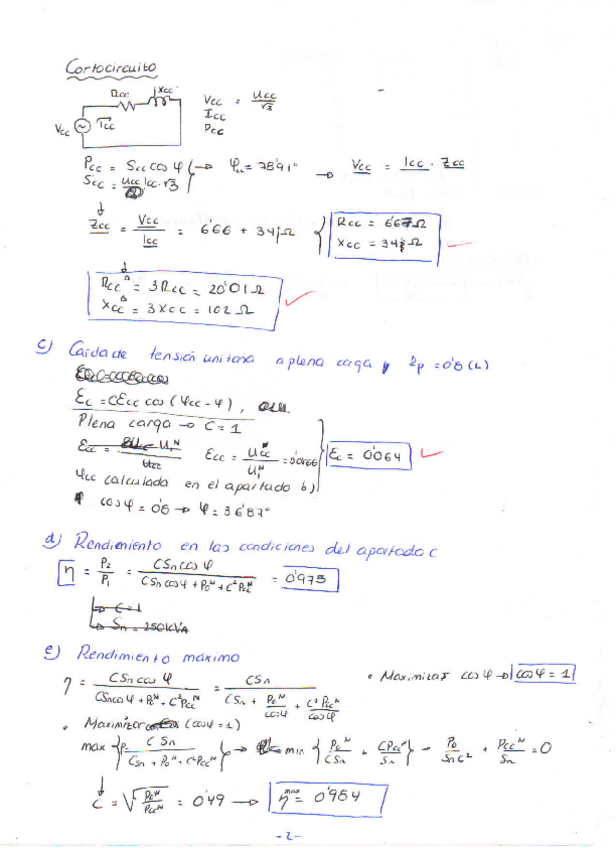 Cortocircuito
Rcc Xcc
Vcc Icc
Vcc = Ucc/√3
Icc
Pcc
Pcc = Scc cos φ → φcc = 78'91° → Vcc = Icc · Zcc
Scc = Ucc Icc · √3
Zcc = Vcc/Icc = 6'66 + 34j Ω { Rcc = 6'67 Ω
Xcc = 34j Ω
Rcc^Δ = 3Rcc = 20'01 Ω
Xcc^Δ = 3Xcc = 102 Ω
c) Caida de tensión unitaria a plena carga y = 0'8 (L)
Ec = C Ecc cos (φcc - φ),
Plena carga → C = 1
Ecc = U1^N/Ucc Ecc = Ucc/U1^N = 0'0866 Ec = 0'064
φcc calculada en el apartado b)
cos φ = 0'8 → φ = 36'87°
d) Rendimiento en las condiciones del apartado c
η = P2/P1 = C Sn cos φ / (C Sn cos φ + Po^N + C² Pcc^N) = 0'975
→ C = 1
→ Sn = 250 kVA
e) Rendimiento máximo
η = C Sn cos φ / (C Sn cos φ + Po^N + C² Pcc^N) = C Sn / (C Sn + Po^N/cos φ + C² Pcc^N/cos φ) • Maximizar cos φ → cos φ = 1
• Maximizar (cos φ = 1)
max { C Sn / (C Sn + Po^N + C² Pcc^N) } → min { Po^N/(C Sn) + C Pcc^N/Sn } - Po/(Sn C²) + Pcc^N/Sn = 0
C = √(Po^N/Pcc^N) = 0'49 → η^max = 0'984
-2-